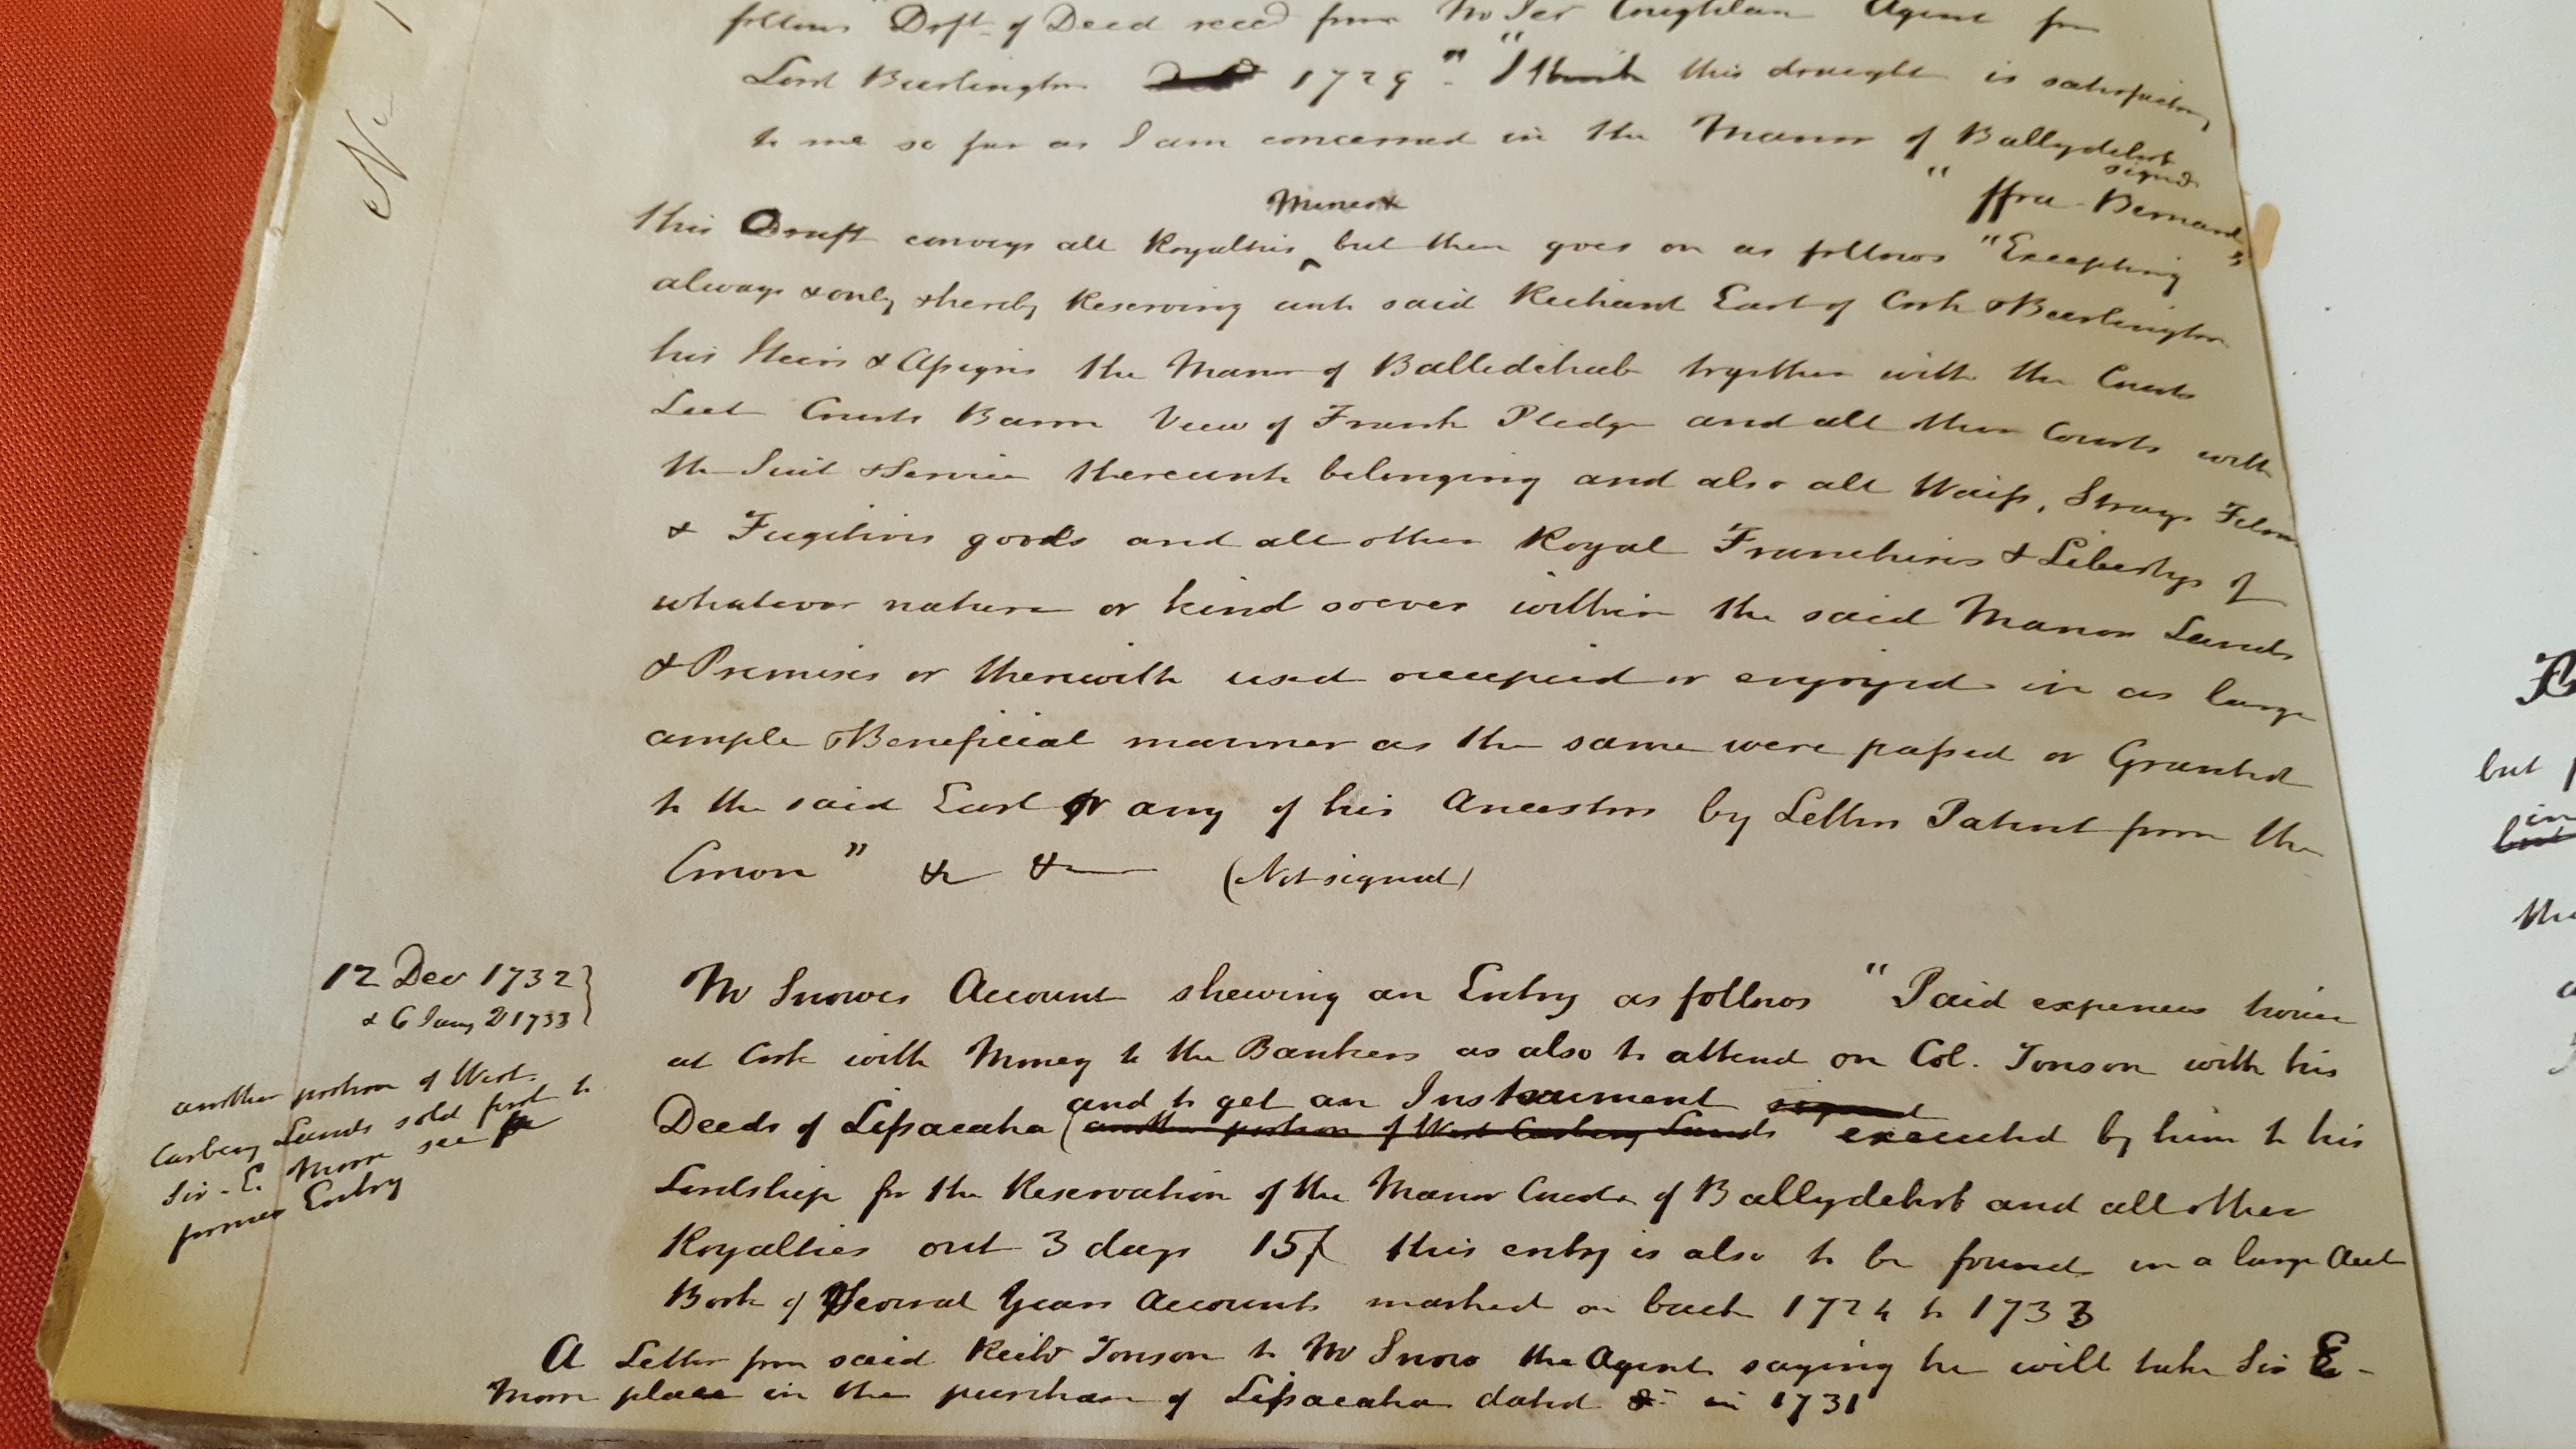 No
follows "Dft. of Deed recd from Mr Jer Coughlan Agent for
Lord Burlington 1729" - "I think this draught is satisfactory
to me so far as I am concerned in the Manor of Ballydehob
signd
"ffra - Bernard"
Mines &
this Draft conveys all Royalties ‸ but then goes on as follows "Excepting
always & only & hereby Reserving unto said Richard Earl of Cork & Burlington
his Heirs & Assigns the Manor of Balledehub together with the Courts
Leet Courts Baron View of Frank Pledge and all other Courts with
the Suit & Service thereunto belonging and also all Waifs, Strays Felons
& Fugitives goods and all other Royal Franchises & Libertys of
whatever nature or kind soever within the said Manor Lands
& Premises or therewith used occupied or enjoyed in as large
ample & Beneficial manner as the same were passed or Granted
to the said Earl or any of his Ancestors by Letters Patent from the
Crown" &c &c (Not signed)
12 Decr 1732
& 6 Jany 1733
another portion of West
Carbery Lands sold first to
Sir E. Moore see
former Entry
Mr Snowes Account shewing an Entry as follows "Paid expences twice
at Cork with Money to the Bankers as also to attend on Col. Tonson with his
and to get an Instrument signed
Deeds of Lissacaha (another portion of West Carbery Lands executed by him to his
Lordship for the Reservation of the Manor Courts of Ballydehob and all other
Royalties out 3 days 15/ this entry is also to be found in a large Acct
Book of Several Years Accounts marked on back 1724 to 1733
A Letter from said Richd Tonson to Mr Snow the Agent saying he will take Sir E-
Moore place in the purchase of Lissacaha dated in 1731
but
in
but
the